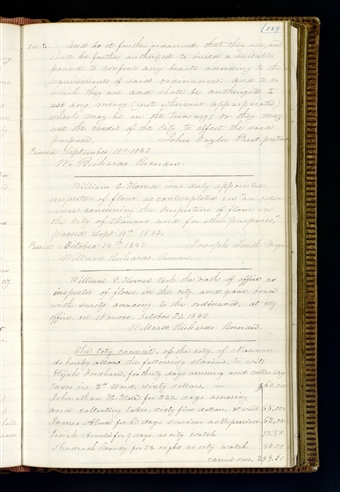 (189
Sec. 2. And be it further ordained that they are, and
shall be further authorized to build a suitable
pound to confine any hearts according to the
requirements of said ordinances: And to do
which they are and shall be authorized to
use any money (not otherwise appropriated,
which may be in the Treasury) or they may
use the credit of the City to effect the said
purpose. John Taylor Prest. protem
Passed September 1842
Willard Richards Recorder.
William E. Horner was duly appointed
inspector of flour as contemplated in "an ordin-
ance concerning the Inspection of flour in
the City of Nauvoo and for other purposes,"
passed Sept. 1842.
Passed October 14th 1842. Joseph Smith Mayor
Willard Richards Recorder
William E. Horner took the oath of office as
inspector of flour in the city and gave bond
with surety according to the ordinance, at my
office, in Nauvoo, October 1842
Willard Richards Recorder.
The City council, of the city of Nauvoo
do hereby allow the following claims, to wit:
Elijah Fordham, for thirty days assessing and collecting
taxes in 2d Ward, sixty dollars, $60.00
Johnathan H. Hale for 32½ days assessing
and collecting taxes sixty five dollars 65.00
James Allred for 63 days services as Supervisor 63.00
Josiah Arnold for 9 days, as city watch 13.50
Shadrach Roundy for 32 nights as city watch 48.00
carried over, 249.50